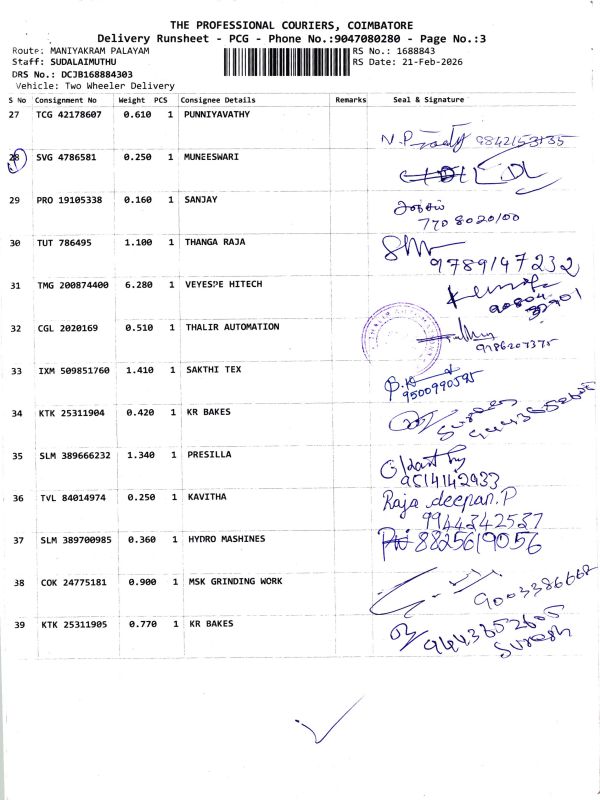 THE PROFESSIONAL COURIERS, COIMBATORE
Delivery Runsheet - PCG - Phone No.:9047080280 - Page No.:3
Route: MANIYAKRAM PALAYAM RS No.: 1688843
Staff: SUDALAIMUTHU RS Date: 21-Feb-2026
DRS No.: DCJB168884303
Vehicle: Two Wheeler Delivery
S No Consignment No Weight PCS Consignee Details Remarks Seal & Signature
27 TCG 42178607 0.610 1 PUNNIYAVATHY
9842153135
28 SVG 4786581 0.250 1 MUNEESWARI
29 PRO 19105338 0.160 1 SANJAY
7708020100
30 TUT 786495 1.100 1 THANGA RAJA
9789147232
31 TMG 200874400 6.280 1 VEYESPE HITECH
32 CGL 2020169 0.510 1 THALIR AUTOMATION
9786207375
33 IXM 509851760 1.410 1 SAKTHI TEX
9500990595
34 KTK 25311904 0.420 1 KR BAKES
Suresh
9443652605
35 SLM 389666232 1.340 1 PRESILLA
9514142933
36 TVL 84014974 0.250 1 KAVITHA
Raja deepan.P
9944342537
37 SLM 389700985 0.360 1 HYDRO MASHINES
8825619056
38 COK 24775181 0.900 1 MSK GRINDING WORK
9003386668
39 KTK 25311905 0.770 1 KR BAKES
9443652605
Suresh